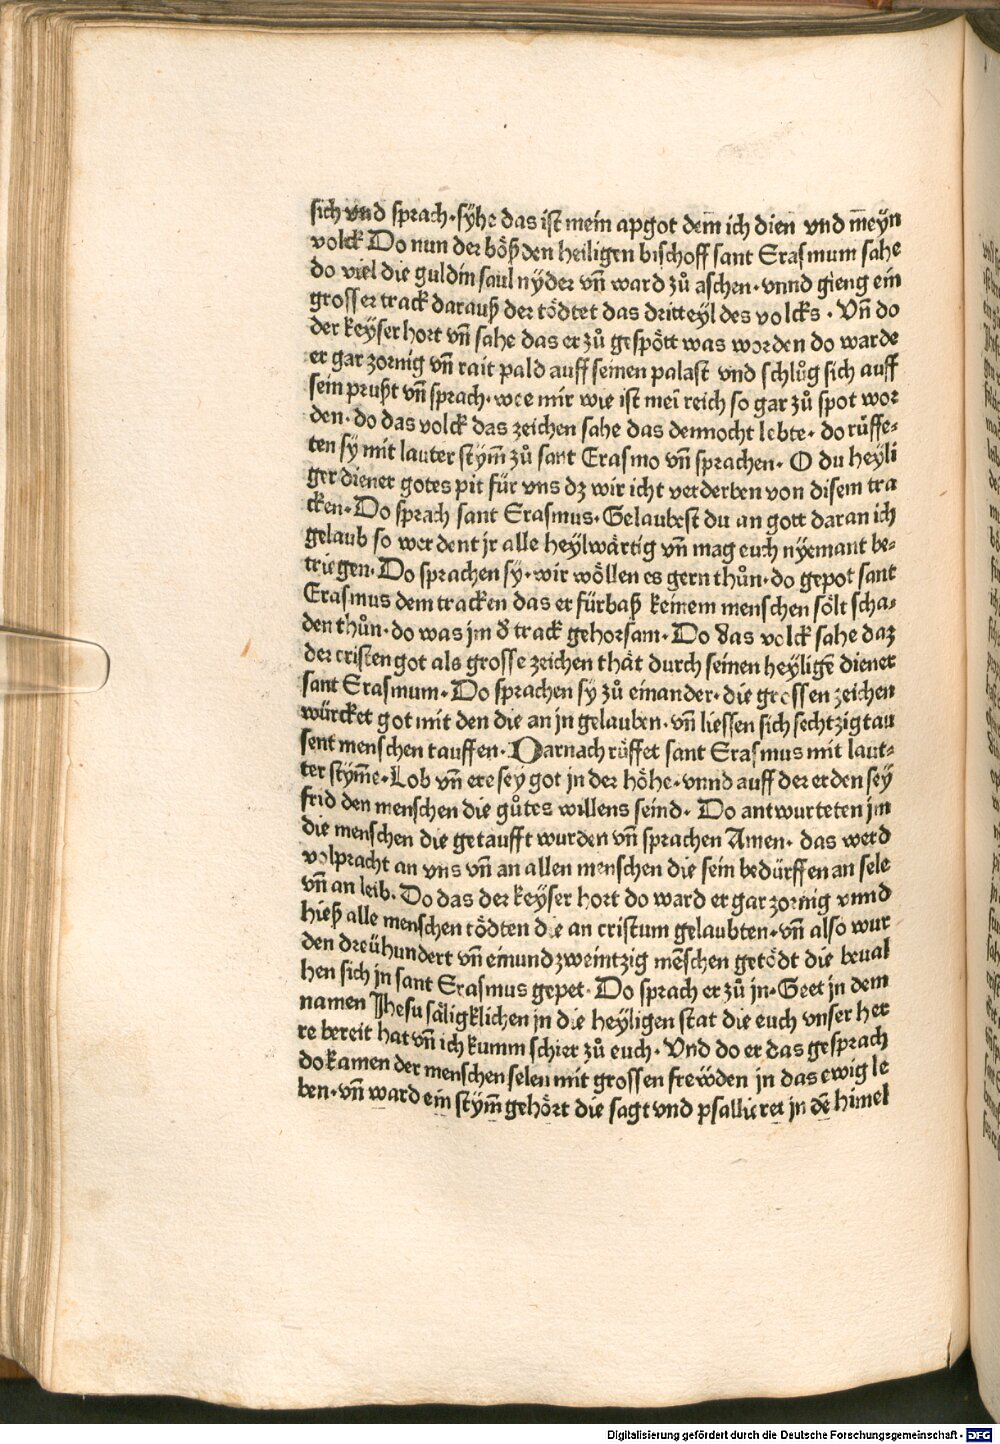 sich vnd sprach·syͤhe das ist mein apgot dem ich dien vnd meyn
volck Do nun der boͤß den heiligen bischoff sant Erasmum sahe
do viel die guldin saul nyder vñ ward zů aschen·vnnd gieng ein
grosser track darauß der toͤdtet das dritteyl des volcks·Vñ do
der keyser hort vñ sahe das er zů gespoͤtt was worden do warde
er gar zornig vñ rait pald auff seinen palast vnd schlůg sich auff
sein prußt vñ sprach·wee mir wie ist meī reich so gar zů spot wor
den·do das volck das zeichen sahe das dennocht lebte·do růffe⸗
ten sy mit lauter stym̄ zů sant Erasmo vñ sprachen·O du heyli
ger diener gotes pit für vns dz wir icht verderben von disem tra
cken·Do sprach sant Erasmus·Gelaubest du an gott daran ich
gelaub so werdent jr alle heylwaͤrtig vñ mag euch nyemant be⸗
triegen·Do sprachen sy·wir woͤllen es gern thůn·do gepot sant
Erasmus dem tracken das er fürbaß keinem menschen soͤlt scha⸗
den thůn·do was jm d̕ track gehorsam·Do das volck sahe daz
der cristen got als grosse zeichen thaͤt durch seinen heylige̅ diener
sant Erasmum·Do sprachen sy zů einander·die grossen zeichen
würcket got mit den die an jn gelauben·vñ liessen sich sechtzigtau
sent menschen tauffen·Darnach ruͤffet sant Erasmus mit laut⸗
ter stym̄e·Lob vñ ere sey got jn der hoͤhe·vnnd auff der erden sey
frid den menschen die gůtes willens seind·Do antwurteten jm
die menschen die getaufft wurden vñ sprachen Amen·das werd
volpracht an vns vñ an allen menschen die sein bedürffen an sele
vñ an leib·Do das der keyser hort do ward er gar zornig vnnd
hieß alle menschen toͤdten die an cristum gelaubten·vñ also wur
den dreühundert vñ einundzweintzig me̅schen getoͤdt die beual
hen sich jn sant Erasmus gepet·Do sprach er zů jn·Geet jn dem
namen Jhesu saͤligklichen jn die heyligen stat die euch vnser her
re bereit hat vñ ich kumm schier zů euch·Vnd do er das gesprach
do kamen der menschen selen mit grossen freẅden jn das ewig le
ben·vñ ward ein stym̄ gehoͤrt die sagt vnd psallieret jn de̅ himel
Digitalisierung gefördert durch die Deutsche Forschungsgemeinschaft - DFG